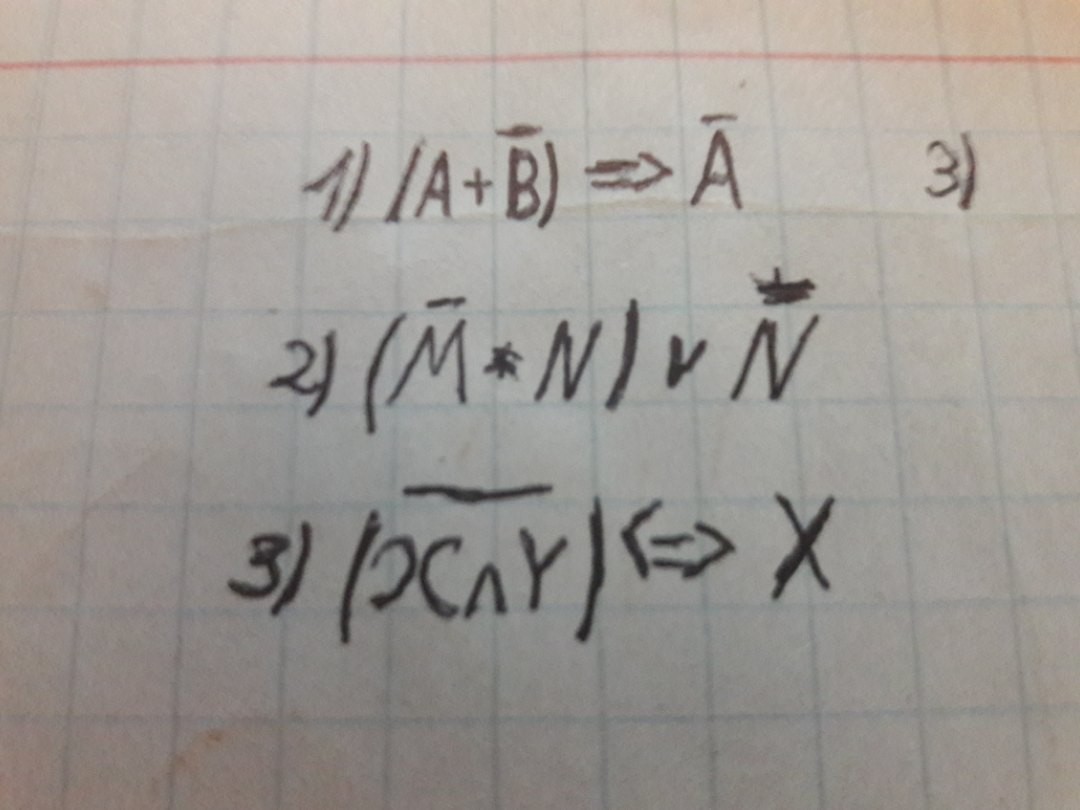 1) (A + B̅) => A̅ 3)
2) (M̅ * N) v N̅
3) (X̅ ̅∧̅ ̅Y̅) <=> X